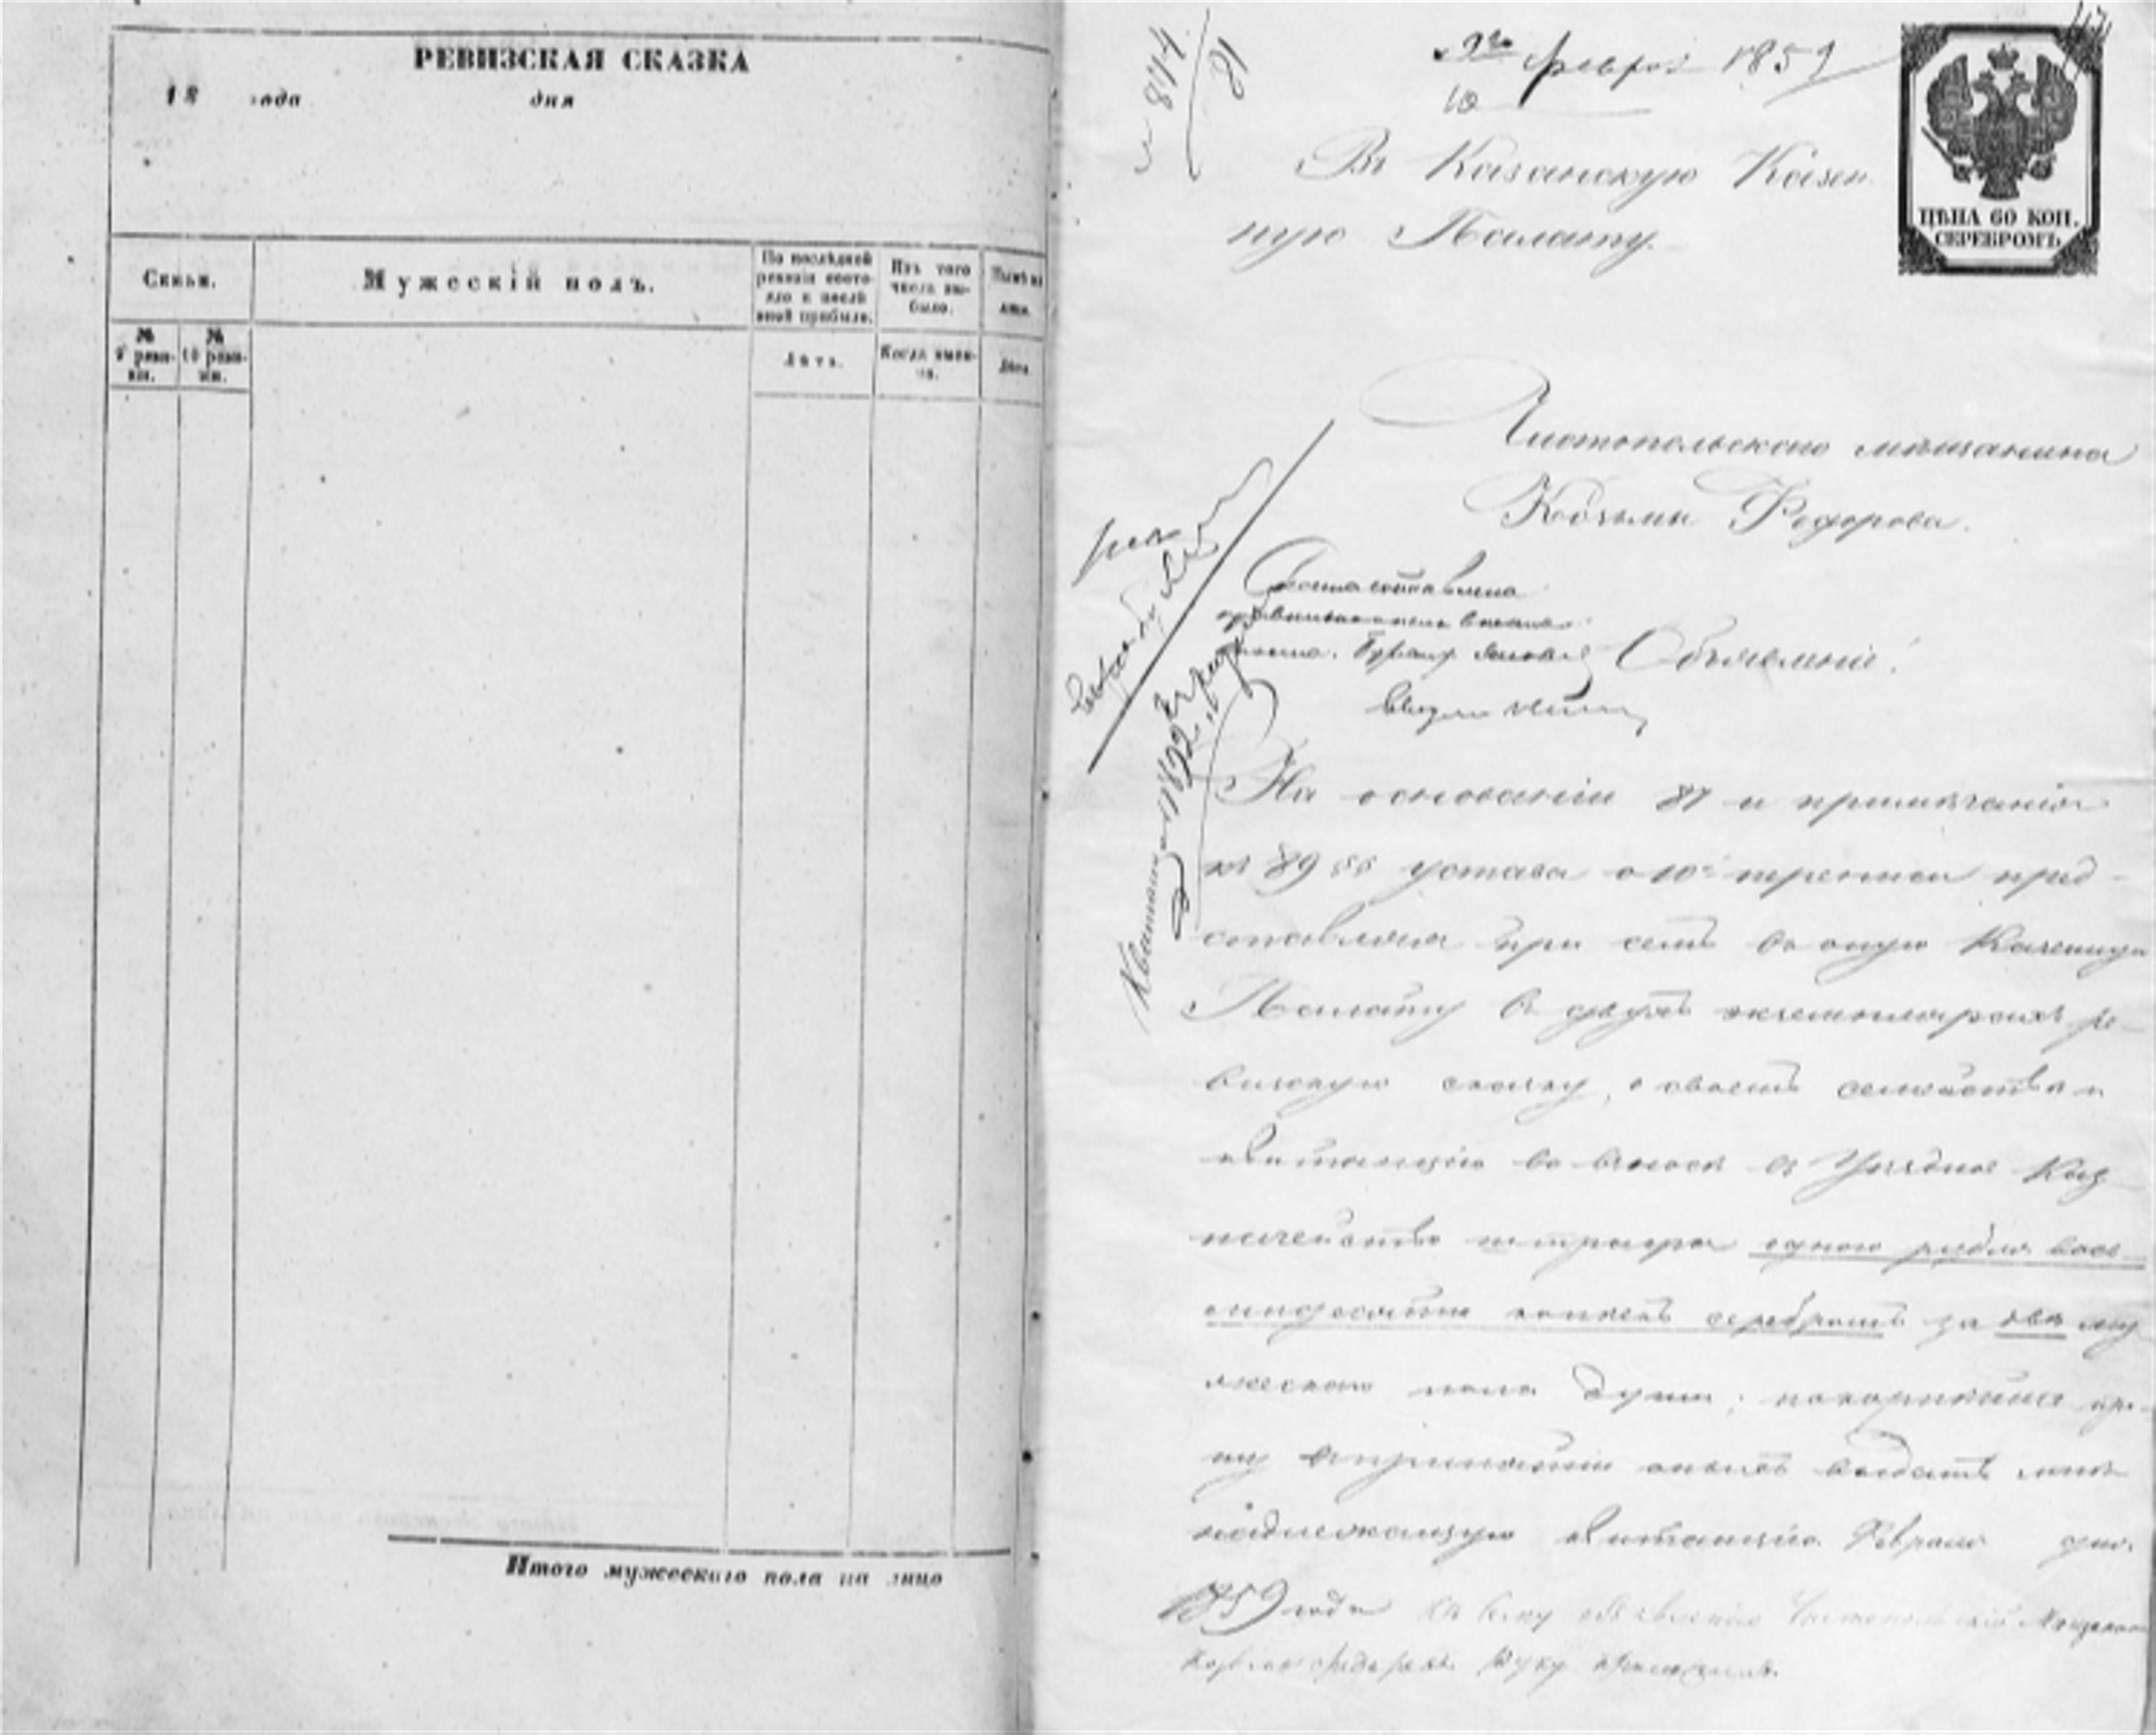 РЕВИЗСКАЯ СКАЗКА
18 года дня
Семьи.
Мужескій полъ.
По послѣдней
ревизіи состо-
яло и послѣ
оной прибыло.
Изъ того
числа вы-
было.
Нынѣ на
лицо.
№
9 реви-
зіи.
№
10 реви-
зіи.
Лѣта.
Когда имен-
но.
Лѣта
Итого мужескаго пола на лицо
814
81
9го Февра 1859
10
ЦѢНА 60 КОП.
СЕРЕБРОМЪ
Въ Казанскую Казен
ную Палату.
Чистопольскаго мѣщанина
Козьмы Федорова.
Объявленіе!
На основаніи 87 и примѣчанія
къ 89 §§ устава о 10й переписи пред-
ставляя при семъ во оную Казенную
Палату въ двухъ экземплярахъ ре-
визскую сказку, о своемъ семействѣ и
квитанцію во взносѣ въ Уѣздное Каз
начейство штрафа одного рубля восе-
мидесяти копѣекъ серебромъ за двѣ му
жескаго пола души; покорнѣйше про-
шу выдать мнѣ
надлежащую квитанцію. Февраля дня.
1859 года къ сему объявленію Чистопольскій Мещанинъ
Козьма Федоровъ руку приложилъ.
Квитанция 1892